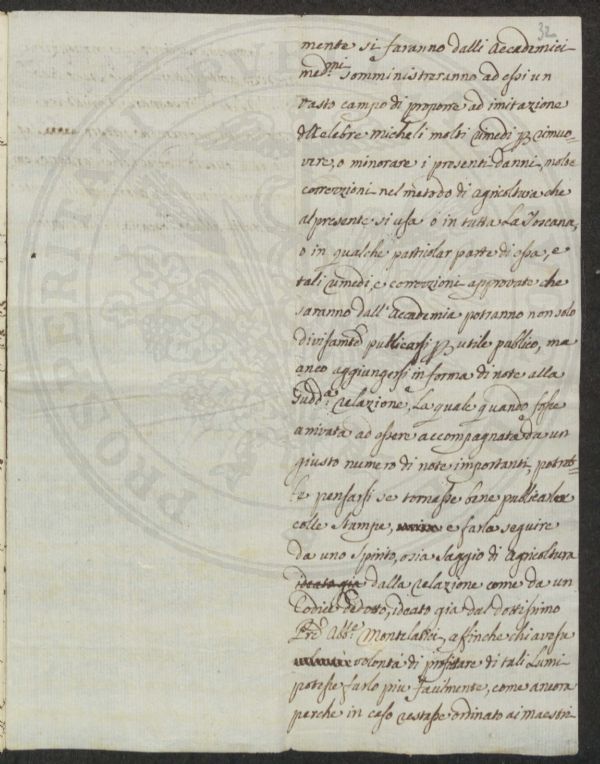 32
mente si faranno dalli Accademici
med.mi somministreranno ad essi un
vasto campo di proporre ad imitazione
del celebre micheli molti rimedi p rimuo-
vere, o minorare i presenti danni, molte
correzzioni nel metodo di agricoltura che
al presente si usa ò in tutta La Toscana,
o in qualche particolar parte di essa, e
tali rimedi, e correzzioni approvate che
saranno dall'Accademia potranno non solo
divisamte publicarsi p utile publico, ma
anco aggiungersi in forma di note alla
Sudd.a relazione, La quale quando fosse
arrivata ad essere accompagnata da un
giusto numero di note importanti, potreb-
be pensarsi se tornasse bene publicarla
colle Stampe, e farla seguire
da uno spirito, o sia saggio di agricoltura
ideato gia dalla relazione come da un
Codice dedotto, ideato gia dal dottissimo
Pre Abb.e Montelatici, affinche chi avesse
volontà di profittare di tali Lumi
potesse farlo più facilmente, come ancora
perche in caso restasse ordinato ai maestri
PRO PUB